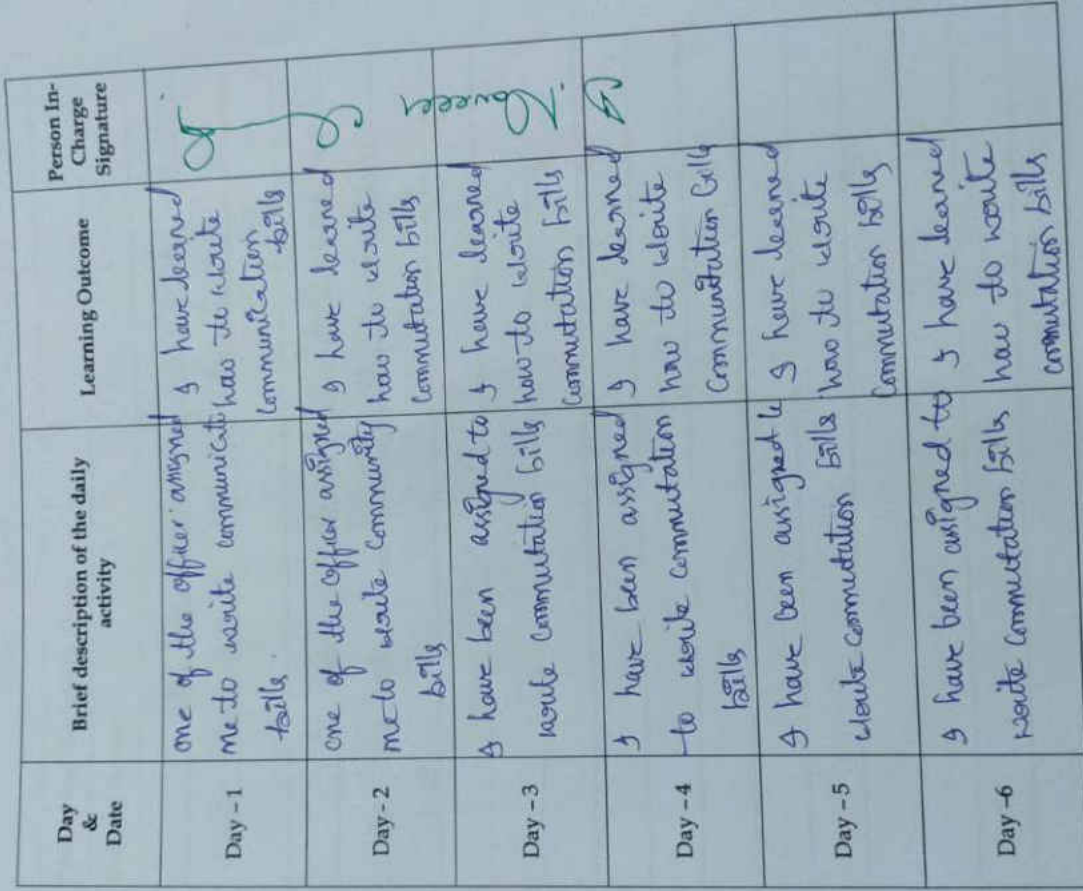 Day
&
Date
Brief description of the daily
activity
Learning Outcome
Person In-
Charge
Signature
Day - 1
one of the officer assigned
me to write communicati
bills.
I have learned
how to write
communication
bills
Day - 2
one of the officer assigned
me to write community
bills
I have learned
how to write
commutation bills
Day - 3
I have been assigned to
write commutation bills
I have learned
how to write
commutation bills
Day - 4
I have been assigned
to write commutation
bills
I have learned
how to write
Commutation bills
Day - 5
I have been assigned to
write commutation bills
I have learned
how to write
commutation bills
Day -6
I have been assigned to
write commutation bills
I have learned
how to write
commutation bills